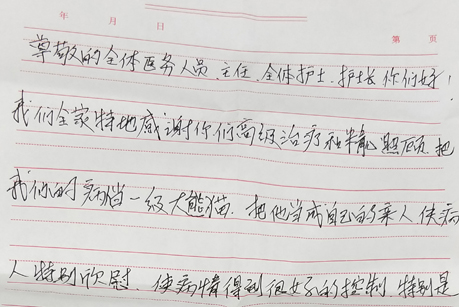 年 月 日
第 页
尊敬的全体医务人员、主任、全体护士、护士长你们好！
我们全家特地感谢你们高级治疗和精心照顾、把
我们的病当一级大熊猫、把他当成自己的亲人使病
人特别欣慰、使病情得到很好的控制、特别是